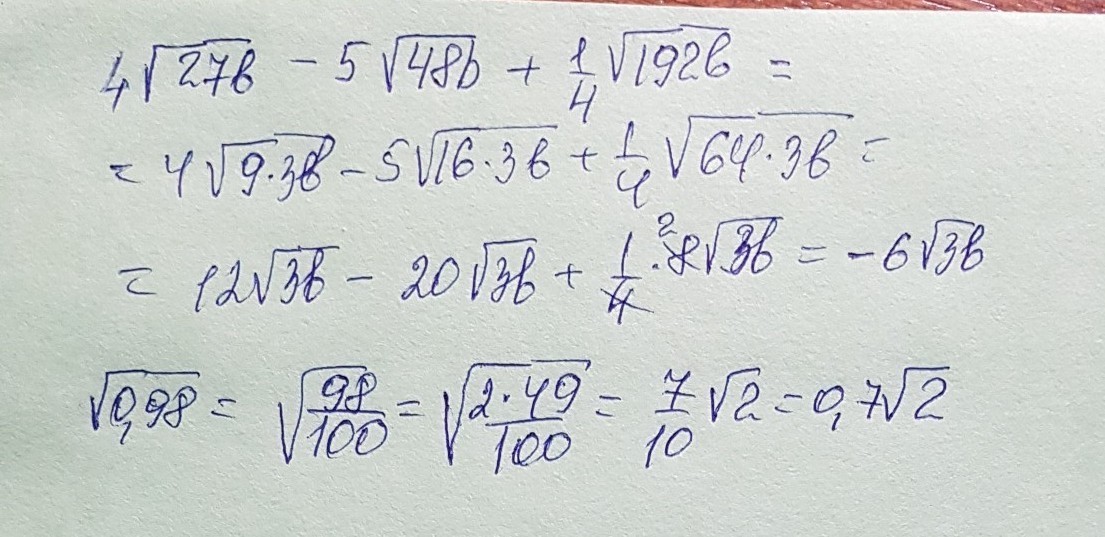 4√27b − 5√48b + 1/4√192b =
= 4√9·3b − 5√16·3b + 1/4√64·3b =
= 12√3b − 20√3b + 1/4·8²√3b = −6√3b
√0,98 = √98/100 = √2·49/100 = 7/10√2 = 0,7√2